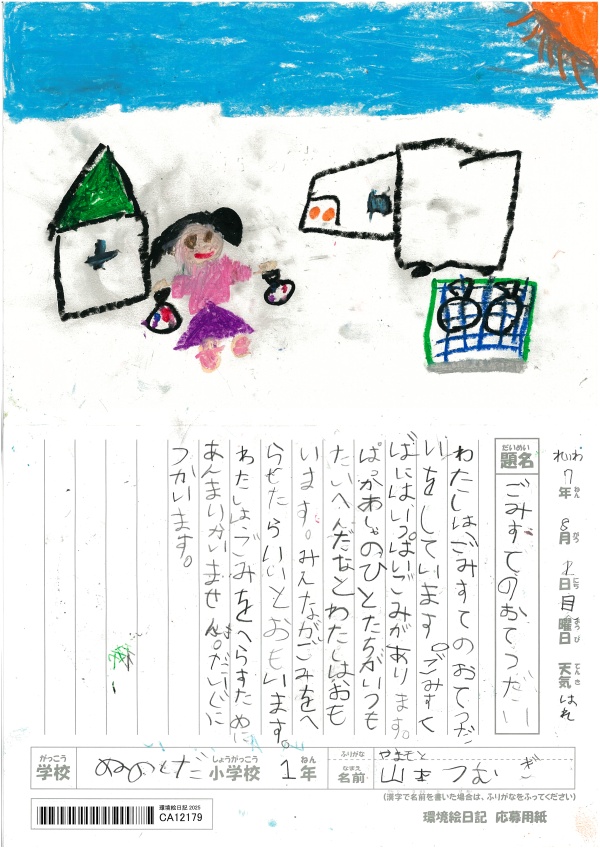 れいわ7年ねん 8月がつ 1日にち 目曜日ようび 天気てんき はれ
題名だいめい ごみすてのおてつだい
わたしは、ごみすてのおてつだ
いをしています。ごみすて
ばには、いっぱいごみがあります。
ぱっかあしゃのひとたちがいつも
たいへんだなとわたしはおも
います。みんながごみをへ
らせたらいいとおもいます。
わたしは、ごみをへらすために
あんまりかいません。だいじに
つかいます。
学校がっこう ぬのとだ 小学校しょうがっこう 1年ねん
ふりがな やまもと
名前なまえ 山本 つむぎ
(漢字で名前を書いた場合は、ふりがなをふってください)
環境絵日記 応募用紙
環境絵日記 2025
CA12179